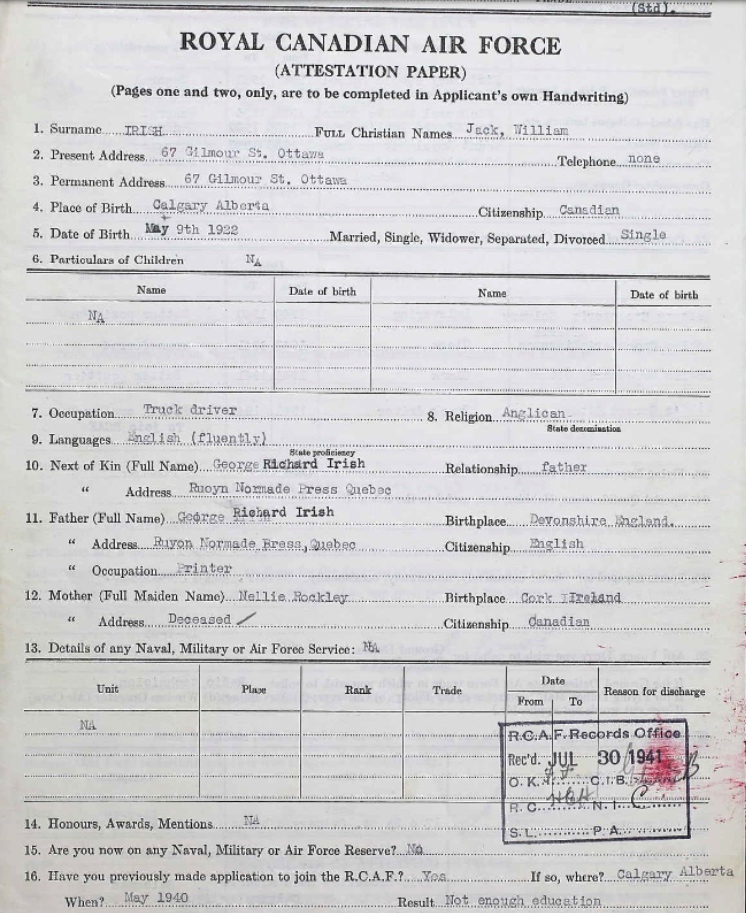 (Std).
ROYAL CANADIAN AIR FORCE
(ATTESTATION PAPER)
(Pages one and two, only, are to be completed in Applicant's own Handwriting)
1. Surname IRISH Full Christian Names Jack, William
2. Present Address 67 Gilmour St. Ottawa Telephone none
3. Permanent Address 67 Gilmour St. Ottawa
4. Place of Birth Calgary Alberta Citizenship Canadian
5. Date of Birth May 9th 1922 Married, Single, Widower, Separated, Divorced Single
6. Particulars of Children NA
Name Date of birth Name Date of birth
NA
7. Occupation Truck driver 8. Religion Anglican
State denomination
9. Languages English (fluently)
State proficiency
10. Next of Kin (Full Name) George Richard Irish Relationship father
" Address Ruoyn Normade Press Quebec
11. Father (Full Name) George Richard Irish Birthplace Devonshire England.
" Address Ruyon Normade Press, Quebec Citizenship English
" Occupation Printer
12. Mother (Full Maiden Name) Nellie Rockley Birthplace Cork Ireland
" Address Deceased Citizenship Canadian
13. Details of any Naval, Military or Air Force Service: NA
Unit Place Rank Trade Date Reason for discharge
From To
NA
R.C.A.F. Records Office
Rec'd. JUL 30 1941
O.K. C.I.B.
R.C. N.I. C
S.L. P.A.
14. Honours, Awards, Mentions NA
15. Are you now on any Naval, Military or Air Force Reserve? No
16. Have you previously made application to join the R.C.A.F.? Yes If so, where? Calgary Alberta
When? May 1940 Result Not enough education